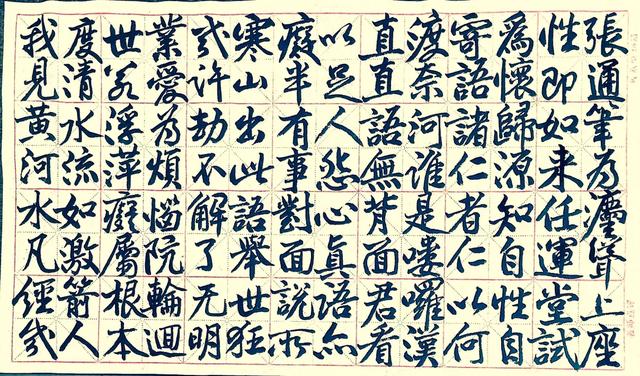 我見黃河水凡經幾
度清水流如激箭人
世若浮萍癡屬根本
業愛為煩惱阬輪迴
幾許劫不解了无明
寒山出此語舉世狂
癡半有事對面說所
以足人怨心真語亦
直直語無背面君看
渡奈河誰是嘍囉漢
寄語諸仁者仁以何
為懷歸源知自性自
性即如来任運堂試
張通筆為灋聲上座